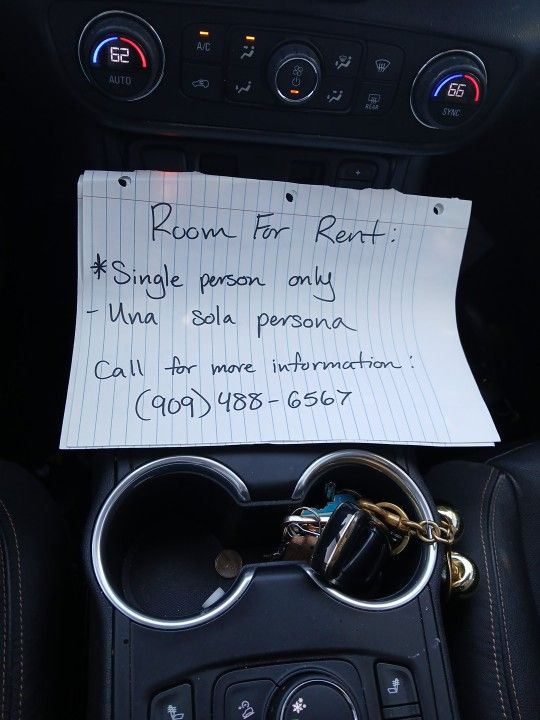 62
AUTO
A/C
REAR
66
SYNC
Room For Rent:
*Single person only
- Una sola persona
Call for more information:
(909) 488-6567